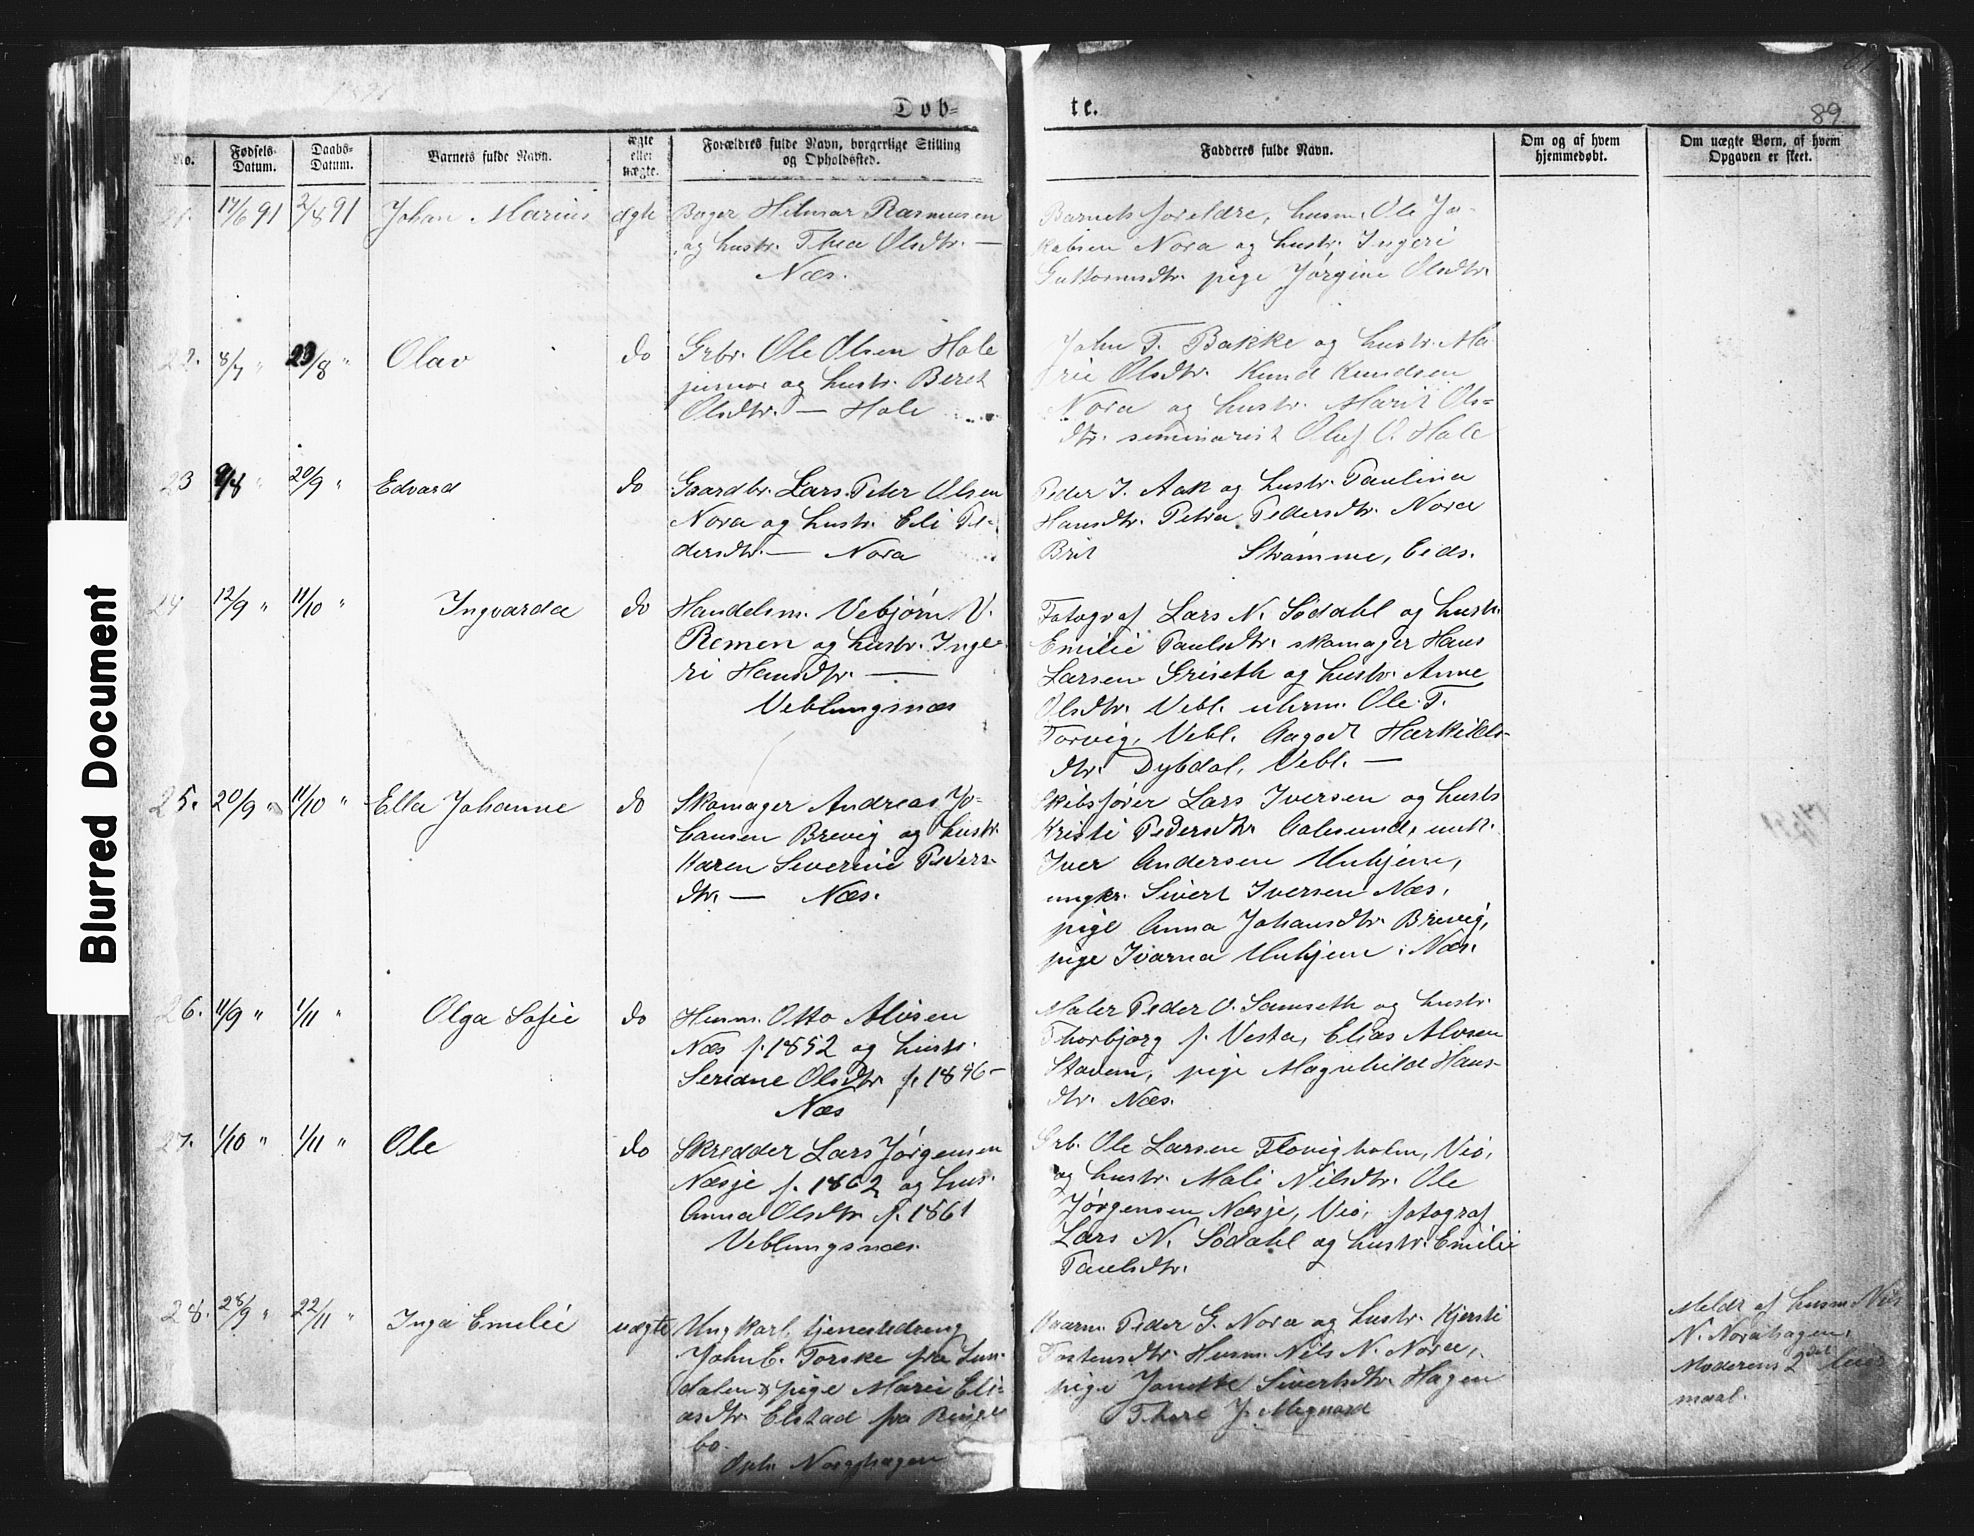 Blurred Document
1891
Døb=
te.
89
No.
Fødsels-
Datum.
Daabs-
Datum.
Barnets fulde Navn.
ægte
eller
uægte.
Forældres fulde Navn, borgerlige Stilling
og Opholdssted.
Fadderes fulde Navn.
Om og af hvem
hjemmedøbt.
Om uægte Børn, af hvem
Opgaven er skeet.
21. 17/6 91 2/8 91 Johan Marius ægte
Bager Hilmar Rasmusen
og hustr. Thea Olsdtr. —
Næs.
Barnets foreldre, husm. Ole Ja-
kobsen Nora og hustr. Ingeri
Guttormsdtr. pige Jørgine Olsdtr.
22. 8/7 " 23/8 " Olav do
Grbr. Ole Olsen Hole
junior og hustr. Beret
Olsdtr. — Hole
John T. Bakke og hustr. Ma
rie Olsdtr. Knud Knudsen
Nora og hustr. Marit Ols=
dtr. seminarist Oluf O. Hole
23 9/8 " 20/9 " Edvard do
Gaardbr. Lars Peter Olsen
Nora og hustr. Eli Pe-
dersdtr. — Nora
Peder J. Aak og hustr. Paulina
Hansdtr. Petra Pedersdtr. Nora
Brit Strømme, Eids.
24 12/9 " 11/10 " Ingvarda do
Handelsm. Vebjørn V.
Remen og hustr. Inge-
ri Hansdtr. —
Veblungsnæs
Fotograf Lars N. Södahl og hustr.
Emilie Paulsdtr. skomager Hans
Larsen Griseth og hustr. Anne
Olsdtr. Vebl. uhrm. Ole T.
Torvig, Vebl. Aagodt Hærkilds-
dtr. Dybdal, Vebl. —
25. 20/9 " 11/10 " Ella Johanne do
Skomager Andreas Jo-
hansen Brevig og hustr.
Karen Severine Peders-
dtr. — Næs.
Skibsfører Lars Iversen og hustr.
Kristi Pedersdtr. Aalesund, enk.
Iver Andersen Unhjem,
ungkr. Sivert Iversen Næs,
pige Anna Johansdtr. Brevig,
pige Ivarna Unhjem, Næs.
26. 11/9 " 1/11 " Olga Sofie do
Husm. Otto Alvsen
Næs f. 1852 og hustr.
Serianne Olsdtr. f. 1846 —
Næs
Maler Peder O. Samseth og hustr.
Thorbjørg f. Vesta, Elias Alvsen
Stavem, pige Magnhild Hans-
dtr. Næs.
27. 1/10 " 1/11 " Ole do
Skredder Lars Jørgensen
Næsje f. 1862 og hus.
Anna Olsdtr. f. 1861
Veblungsnæs.
Grb. Ole Larsen Flovigholm, Vio,
og hustr. Mali Nilsdtr. Ole
Jørgensen Næsje, Vio, fotograf
Lars N. Södahl og hustr. Emilie
Paulsdtr.
28. 28/9 " 22/11 " Inga Emilie uægte
Ungkarl, tjenestedreng
John E. Torske fra Sun-
dalen & pige Marie Eli-
asdtr. Elstad fra Ringe-
bo.
Oph. Norahagen
Kaarm. Peder G. Nora og hustr. Kjersti
Tostensdtr. Husm. Nils N. Nora,
pige Janette Sivertsdtr. Hagen
Thore J. Megaard
Meldt af husm. Nils
N. Norahagen,
Moderens 2det leier
maal.